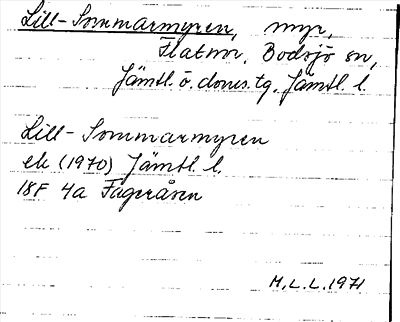 Lill-Sommarmyren, myr,
Flatnor, Bodsjö sn,
Jämtl. ö. doms. tg, Jämtl. l.
Lill-Sommarmyren
ek (1970) Jämtl. l.
18F 4a Fageråsen
M.L.L. 1971